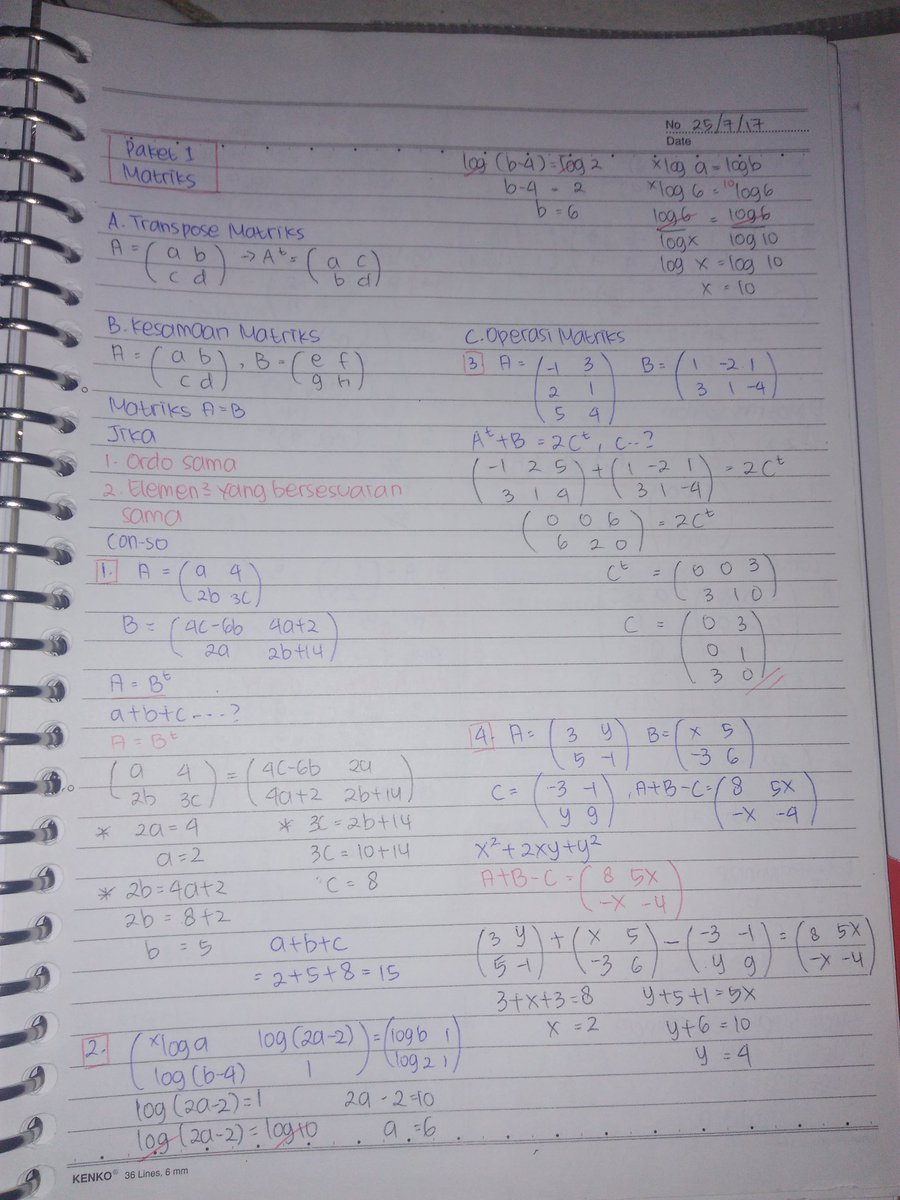 No 25/7/17
Date
Paket 1
Matriks
A. Transpose Matriks
A = (a b) → Aᵗ = (a c)
(c d) (b d)
B. Kesamaan Matriks
A = (a b), B = (e f)
(c d) (g h)
Matriks A=B
Jika
1. Ordo sama
2. Elemen² yang bersesuaian
sama
Con-so
1. A = (a 4)
(2b 3c)
B = (4c-6b 4a+2)
(2a 2b+14)
A = Bᵗ
a+b+c ---?
A = Bᵗ
(a 4) = (4c-6b 2a)
(2b 3c) (4a+2 2b+14)
* 2a=4 * 3c=2b+14
a=2 3c=10+14
* 2b=4a+2 c=8
2b=8+2
b=5 a+b+c
=2+5+8=15
2. (ˣlog a log(2a-2)) = (log b 1)
(log(b-4) 1) (log 2 1)
log(2a-2)=1 2a-2=10
log(2a-2)=log 10 a=6
log(b-4)=log 2 ˣlog a = log b
b-4=2 ˣlog 6 = ¹⁰log 6
b=6 log 6 = log 6
log x log 10
log x = log 10
x = 10
C. Operasi Matriks
3 A = (-1 3) B = (1 -2 1)
(2 1) (3 1 -4)
(5 4)
Aᵗ+B = 2Cᵗ, C--?
(-1 2 5) + (1 -2 1) = 2Cᵗ
(3 1 4) (3 1 -4)
(0 0 6) = 2Cᵗ
(6 2 0)
Cᵗ = (0 0 3)
(3 1 0)
C = (0 3)
(0 1)
(3 0)
4. A = (3 y) B = (x 5)
(5 -1) (-3 6)
C = (-3 -1), A+B-C = (8 5x)
(y 9) (-x -4)
x²+2xy+y²
A+B-C = (8 5x)
(-x -4)
(3 y) + (x 5) - (-3 -1) = (8 5x)
(5 -1) (-3 6) (y 9) (-x -4)
3+x+3=8 y+5+1=5x
x=2 y+6=10
y=4
KENKO® 36 Lines, 6 mm